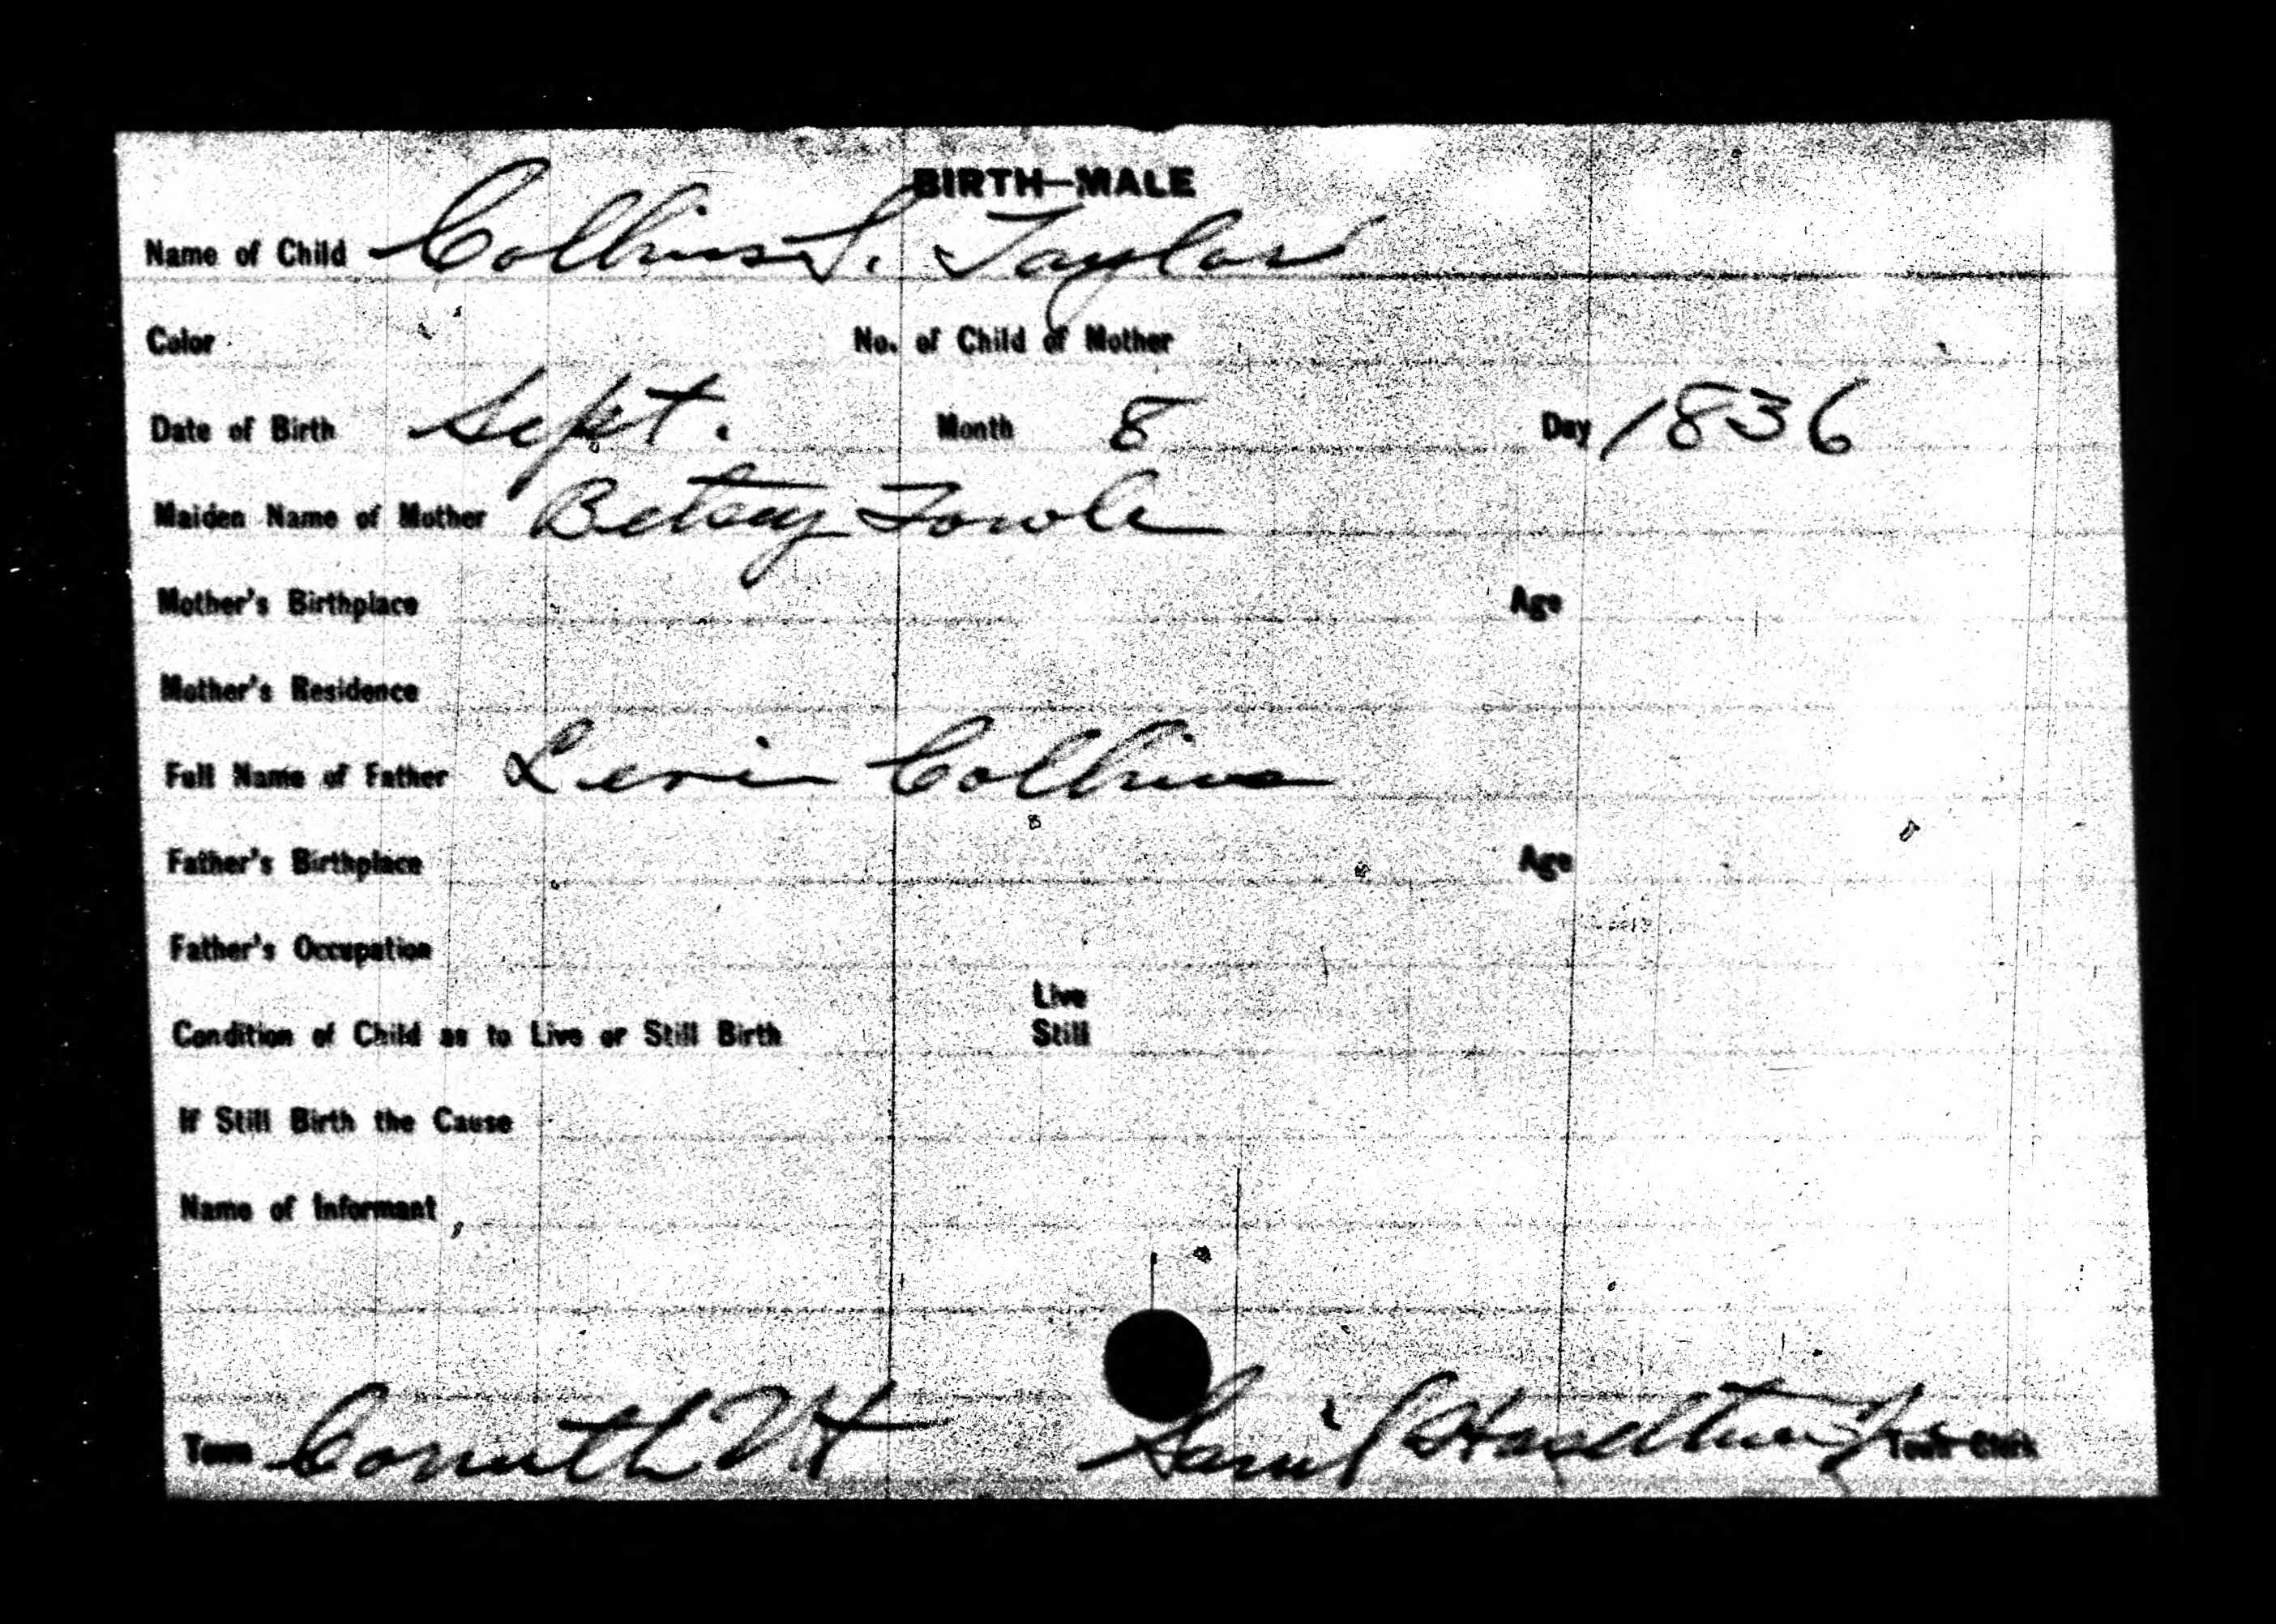 BIRTH—MALE
Name of Child Collins S. Taylor
Color No. of Child of Mother
Date of Birth Sept. Month 8 Day 1836
Maiden Name of Mother Betsey Towle
Mother's Birthplace Age
Mother's Residence
Full Name of Father Levi Collins
Father's Birthplace Age
Father's Occupation
Live
Condition of Child as to Live or Still Birth Still
If Still Birth the Cause
Name of Informant
Town Corinth Vt Town Clerk